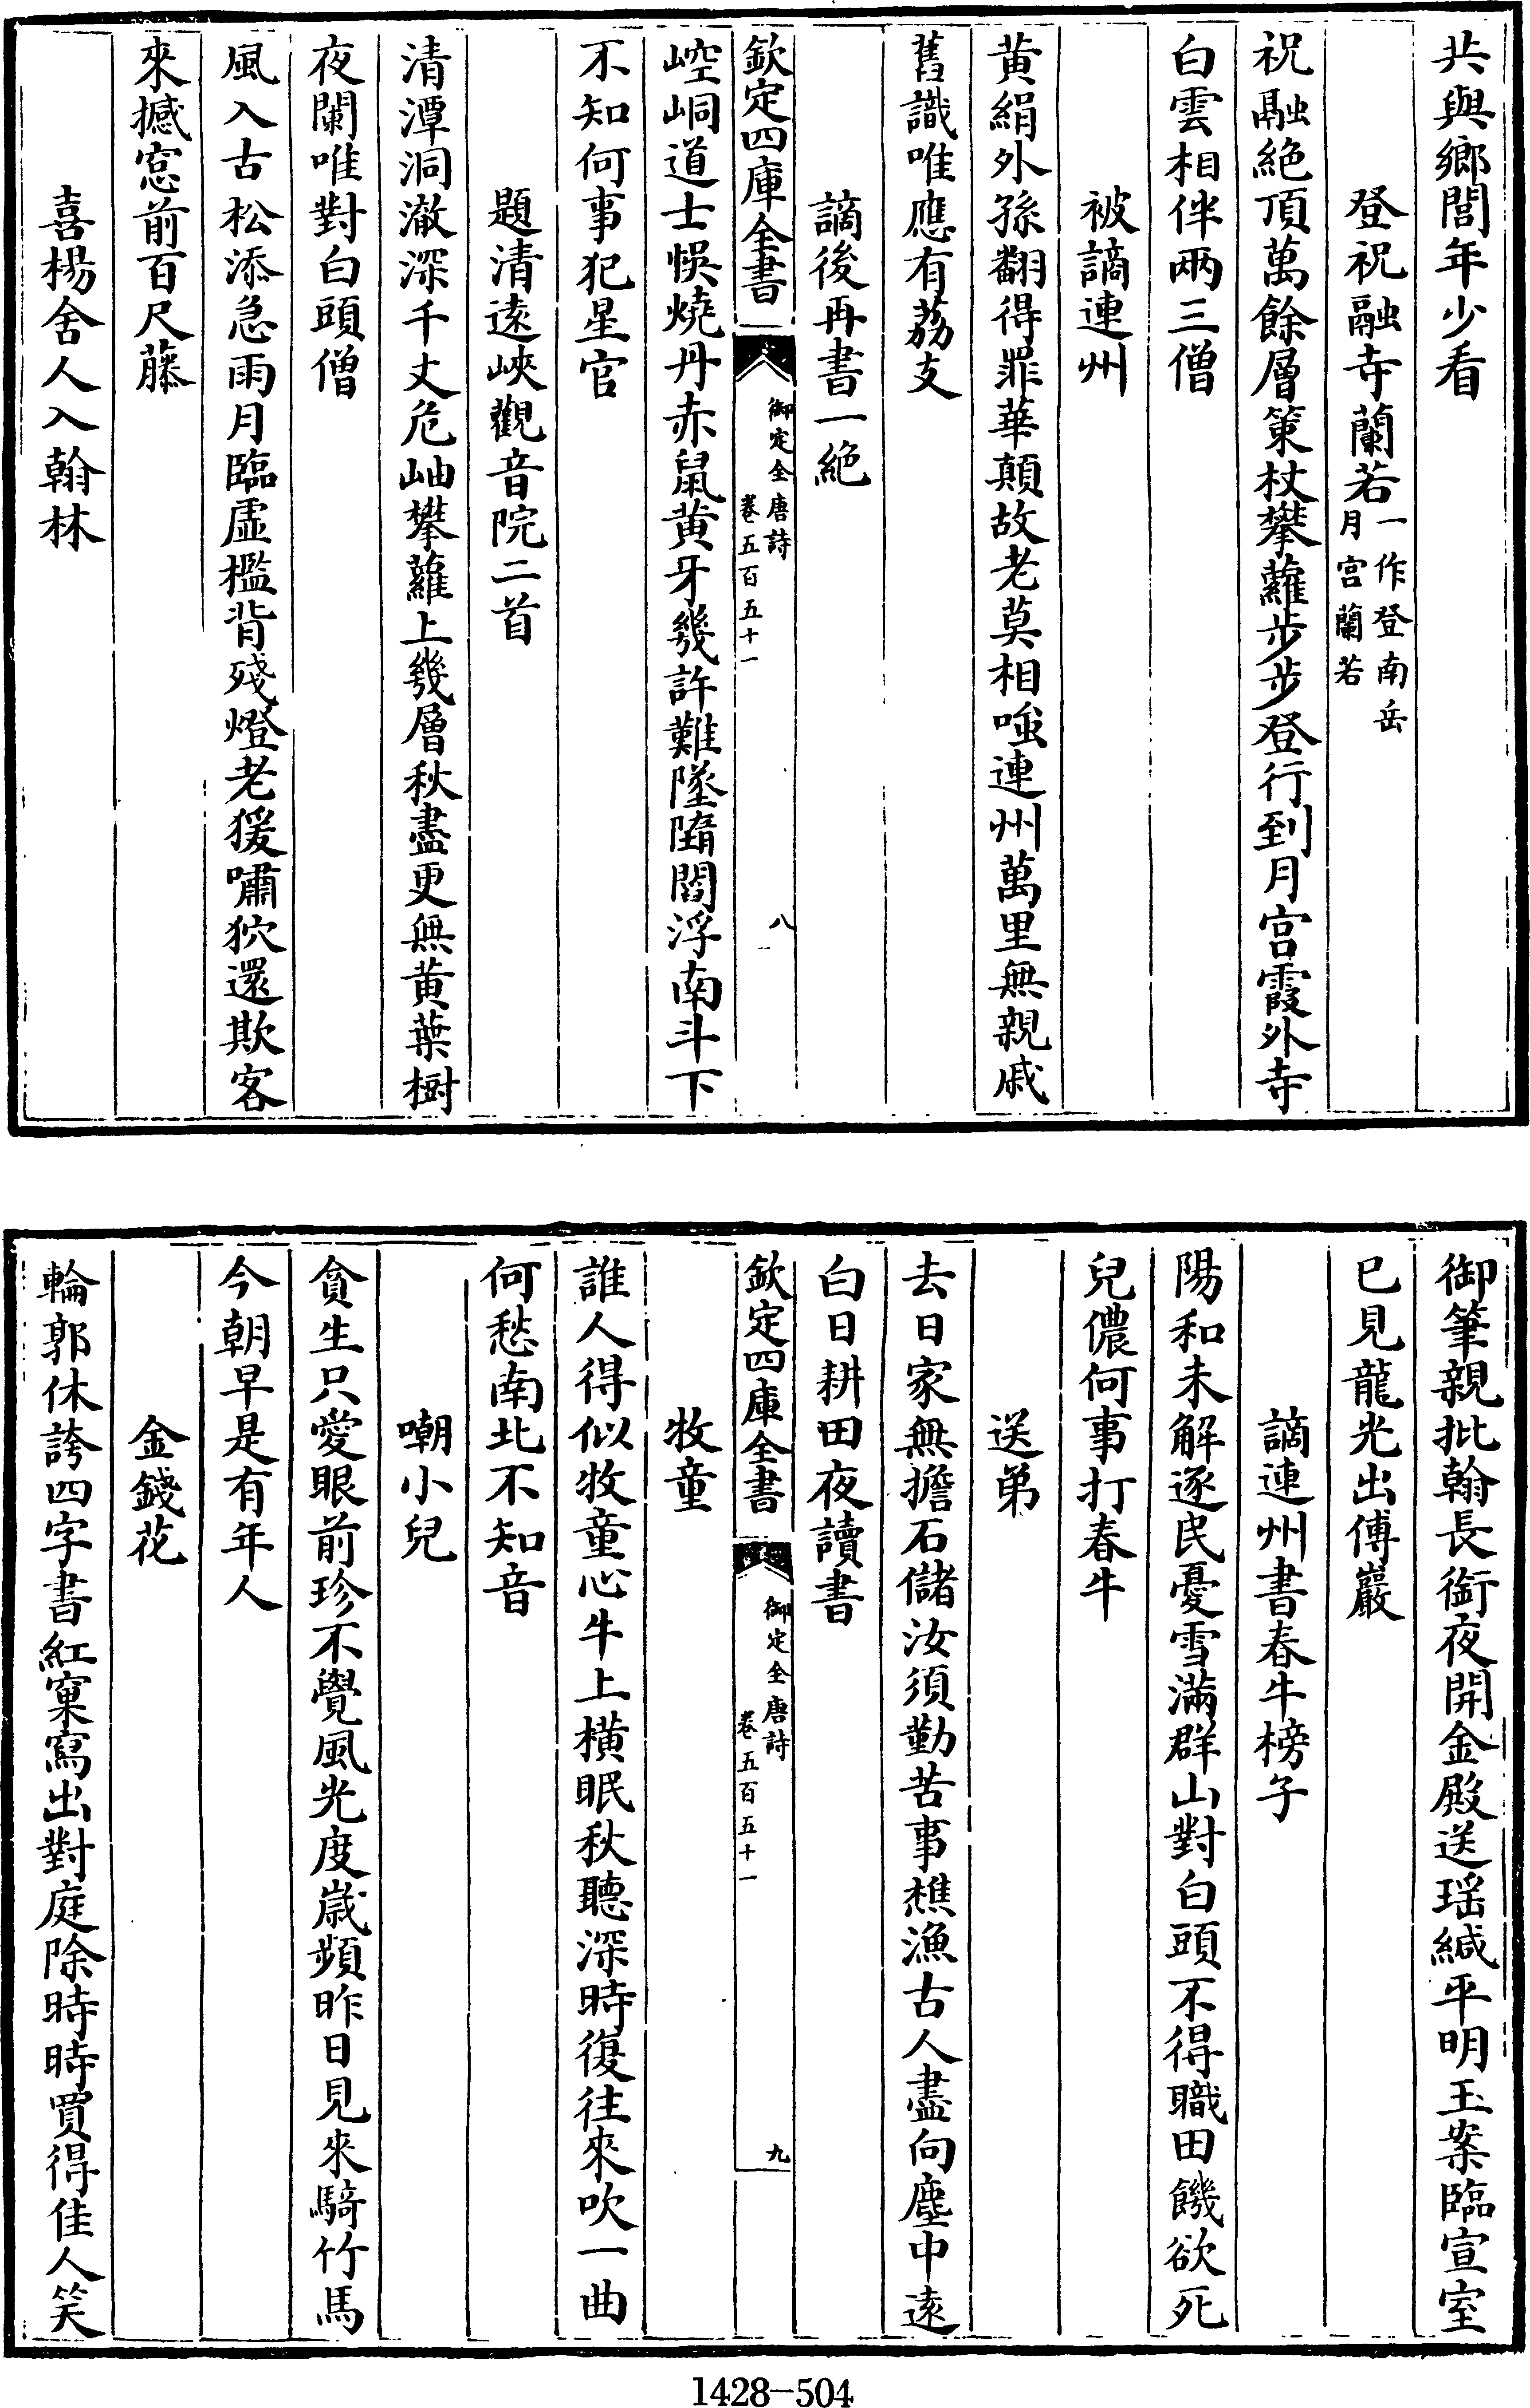 共與鄉閭年少看
登祝融寺蘭若一作登南岳月宫蘭若
祝融絶頂萬餘層策杖攀蘿步步登行到月宫霞外寺
白雲相伴兩三僧
被謫連州
黄絹外孫翻得罪華顛故老莫相嗤連州萬里無親戚
舊識唯應有荔支
謫後再書一絶
欽定四庫全書
御定全唐詩
卷五百五十一
八
崆峒道士悞燒丹赤鼠黄牙幾許難墜隋閻浮南斗下
不知何事犯星官
題清逺峽觀音院二首
清潭洞澈深千丈危岫攀蘿上幾層秋盡更無黄葉樹
夜闌唯對白頭僧
風入古松添急雨月臨虚檻背殘燈老猨嘯狖還欺客
來撼窓前百尺藤
喜楊舍人入翰林
御筆親批翰長銜夜開金殿送瑶緘平明玉案臨宣室
已見龍光出傅巖
謫連州書春牛榜子
陽和未解逐民憂雪滿群山對白頭不得職田饑欲死
兒儂何事打春牛
送弟
去日家無擔石儲汝須勤苦事樵漁古人盡向塵中逺
白日耕田夜讀書
欽定四庫全書
御定全唐詩
卷五百五十一
九
牧童
誰人得似牧童心牛上横眠秋聽深時復往來吹一曲
何愁南北不知音
嘲小兒
貪生只愛眼前珍不覺風光度歳頻昨日見來騎竹馬
今朝早是有年人
金錢花
輪郭休誇四字書紅窠寫出對庭除時時買得佳人笑
1428-504